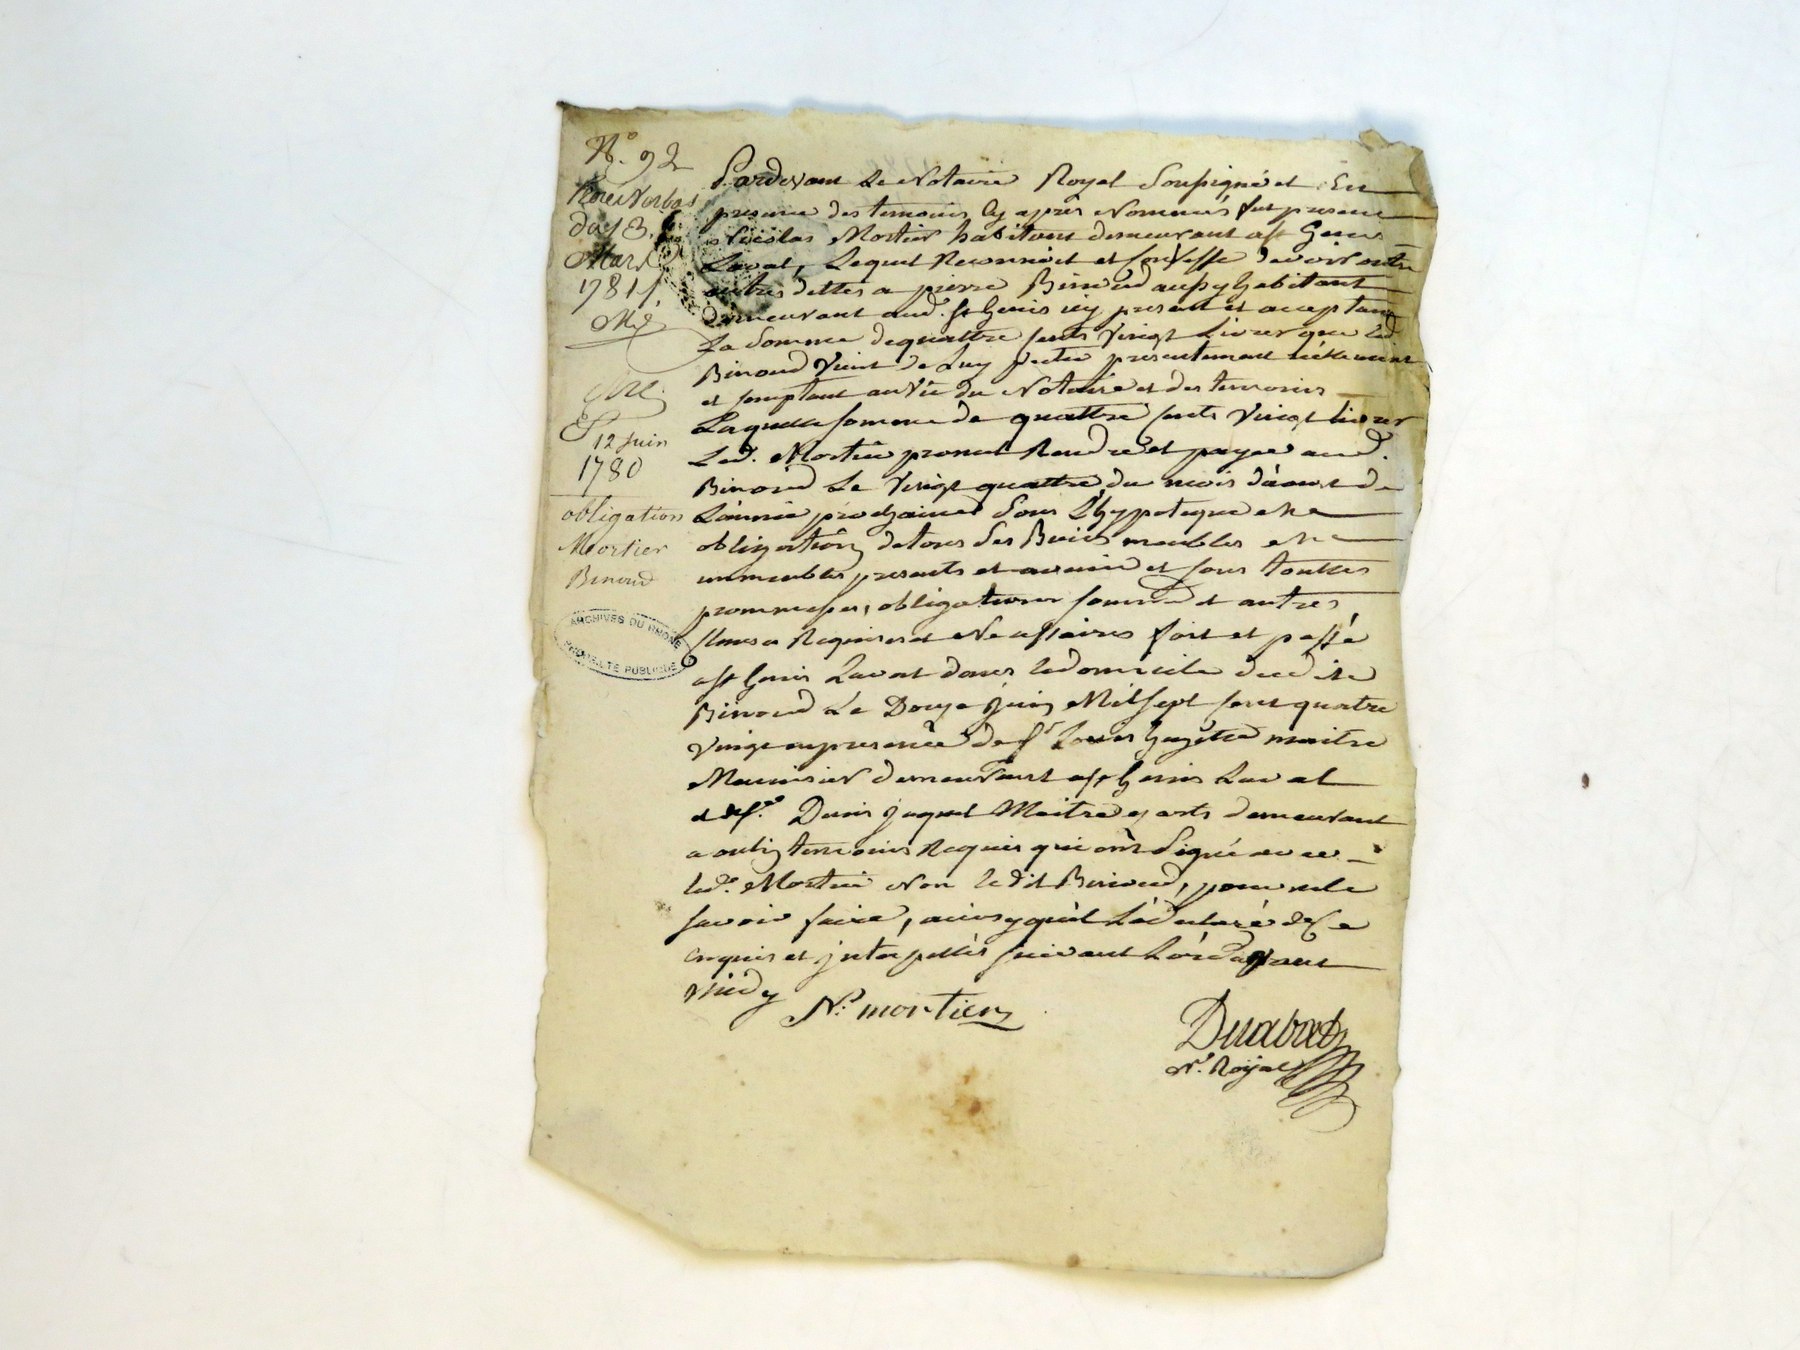 N.° 92
Procès Verbal
du 13.
Mars
1781
Exte.
12 juin
1780
obligation
Mortier
Binoud
ARCHIVES DU RHONE
PROPRIÉTÉ PUBLIQUE
Pardevant Le Notaire Royal Soussigné et En
presence des temoins Cy après Nommés fut present
Nicolas Mortier habitant demeurant a st Genis
Laval, Lequel Reconnoit et Confesse devoir entre
autres dettes a pierre Binoud aussy habitant
demeurant aud. st Genis icy present et acceptant
La Somme de quattre cents vingt Livres que led
Binoud Vient de Luy preter presentement réellement
et comptant au Vû du Notaire et des temoins
Laquelle somme de quattre cents Vingt livres
Led. Mortier promet Rendre et payer aud.
Binoud Le Vingt quattre du mois d'aoust de
L'année prochaine Sous L'hypoteque et
obligation de tous Ses Biens meubles et
immeubles presents et avenir et sous touttes
prommesses, obligations soumis et autres
Clauses Requises et Necessaires fait et passé
a st Genis Laval dans le domicile dud
Binoud Le Douze juin Mil sept cent quatre
Vingt en presence de sr Louis maitre
Menuisier demeurant a st Genis Laval
et de sr. Denis jaquet Maitre es arts demeurant
a oulin temoins Requis qui ont Signé avec
led. Mortier Non le dit Binoud, pour ne le
savoir faire, ainsy qu'il L'a declaré de ce
enquis et interpellés suivant L'ordonnance
N. mortier
N.e Royal